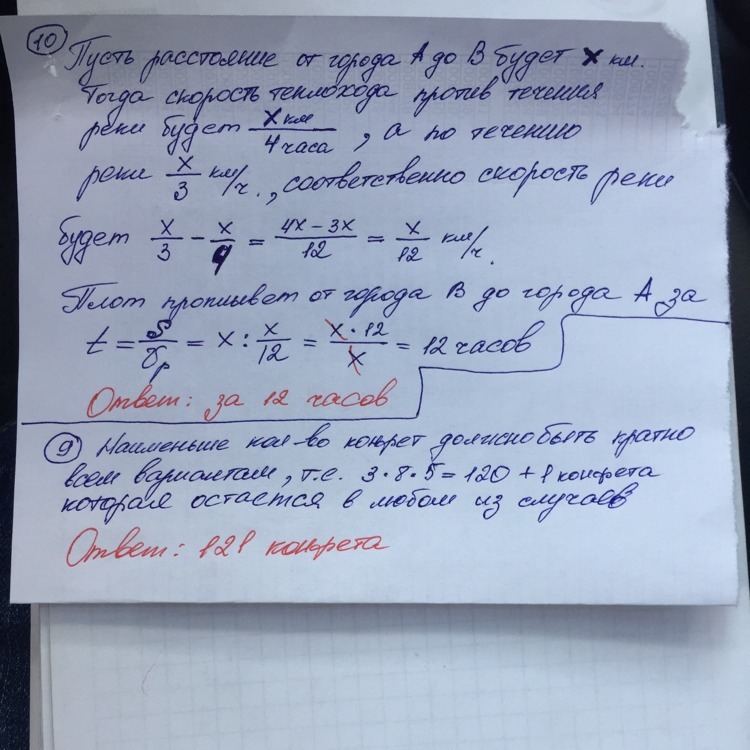 10 Пусть расстояние от города А до В будет х км.
Тогда скорость теплохода против течения
реки будет х км / 4 часа, а по течению
реки х/3 км/ч., соответственно скорость реки
будет х/3 - х/4 = 4х - 3х / 12 = х/12 км/ч.
Плот проплывет от города В до города А за
t = S/υр = х : х/12 = х · 12 / х = 12 часов
Ответ: за 12 часов
9 Наименьше кол-во конфет должно быть кратно
всем вариантам, т.е. 3·8·5=120 + 1 конфета
которая остается в любом из случаев
Ответ: 121 конфета